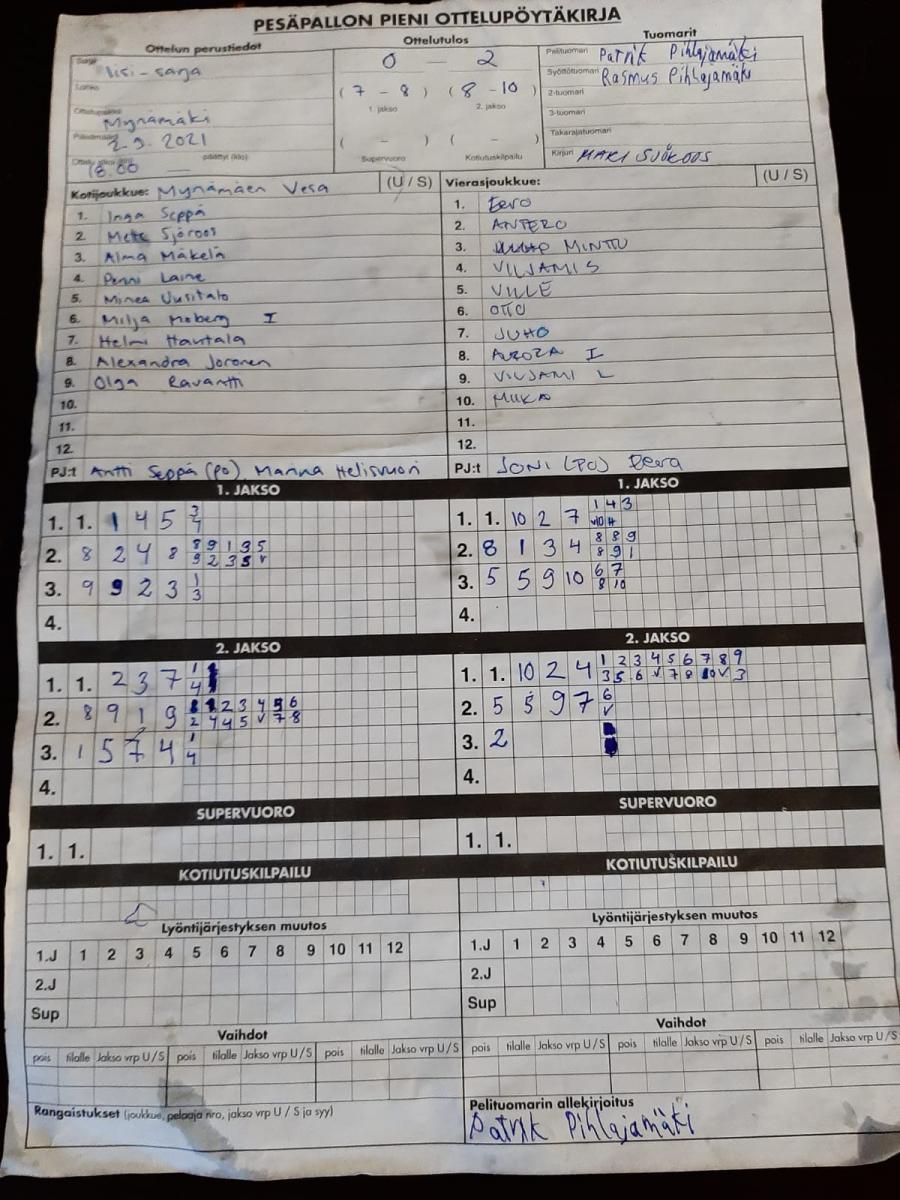 PESÄPALLON PIENI OTTELUPÖYTÄKIRJA
Ottelun perustiedot Ottelutulos Tuomarit
Sarja iisi-sarja 0 – 2 Pelituomari Patrik Pihlajamäki
Lohko (7 – 8) (8 – 10) Syöttötuomari Rasmus Pihlajamäki
1. jakso 2. jakso 2-tuomari
Ottelupaikka Mynämäki 3-tuomari
Päivämäärä 2.9. 2021 ( – ) ( – ) Takarajatuomari
18.00 — päättyi (klo) Supervuoro Kotiutuskilpailu Kirjuri
Kotijoukkue: Mynämäen Vesa (U / S) Vierasjoukkue: (U / S)
1. Inga Seppä 1. Eero
2. Sjöroos 2. ANTERO
3. Alma Mäkelä 3. MINTTU
4. Penni Laine 4. VILJAMI S
5. Minea Uusitalo 5. VILLE
6. Milja Moberg I 6. OTTO
7. Helmi Hautala 7. JUHO
8. Alexandra Joronen 8. AURORA I
9. Olga Ravantti 9. VILJAMI L
10. 10. MIIKA
11. 11.
12. 12.
PJ:t Antti Seppä (po), Marina Helisvuori PJ:t JONI (PO)
1. JAKSO 1. JAKSO
3 1 4 3
1. 1. 1 4 5 4 1. 1. 10 2 7
8 9 1 3 5 8 8 9
2. 8 2 4 8 9 2 3 5 v 2. 8 1 3 4 8 9 1
1 6 7
3. 9 9 2 3 3 3. 5 5 9 10 8 10
4. 4.
2. JAKSO 2. JAKSO
1 1 2 3 4 5 6 7 8 9
1. 1. 2 3 7 4 1. 1. 10 2 4 3 5 6 v 7 8 10 v 3
1 2 3 4 5 6 6
2. 8 9 1 9 2 4 4 5 v 7 8 2. 5 5 9 7 v
1
3. 1 5 7 4 4 3. 2
4. 4.
SUPERVUORO SUPERVUORO
1. 1. 1. 1.
KOTIUTUSKILPAILU KOTIUTUSKILPAILU
Lyöntijärjestyksen muutos Lyöntijärjestyksen muutos
1.J 1 2 3 4 5 6 7 8 9 10 11 12 1.J 1 2 3 4 5 6 7 8 9 10 11 12
2.J 2.J
Sup Sup
Vaihdot Vaihdot
pois tilalle Jakso vrp U / S pois tilalle Jakso vrp U / S pois tilalle Jakso vrp U / S pois tilalle Jakso vrp U / S pois tilalle Jakso vrp U / S pois tilalle Jakso vrp U / S
Rangaistukset (joukkue, pelaaja nro, jakso vrp U / S ja syy) Pelituomarin allekirjoitus
Patrik Pihlajamäki